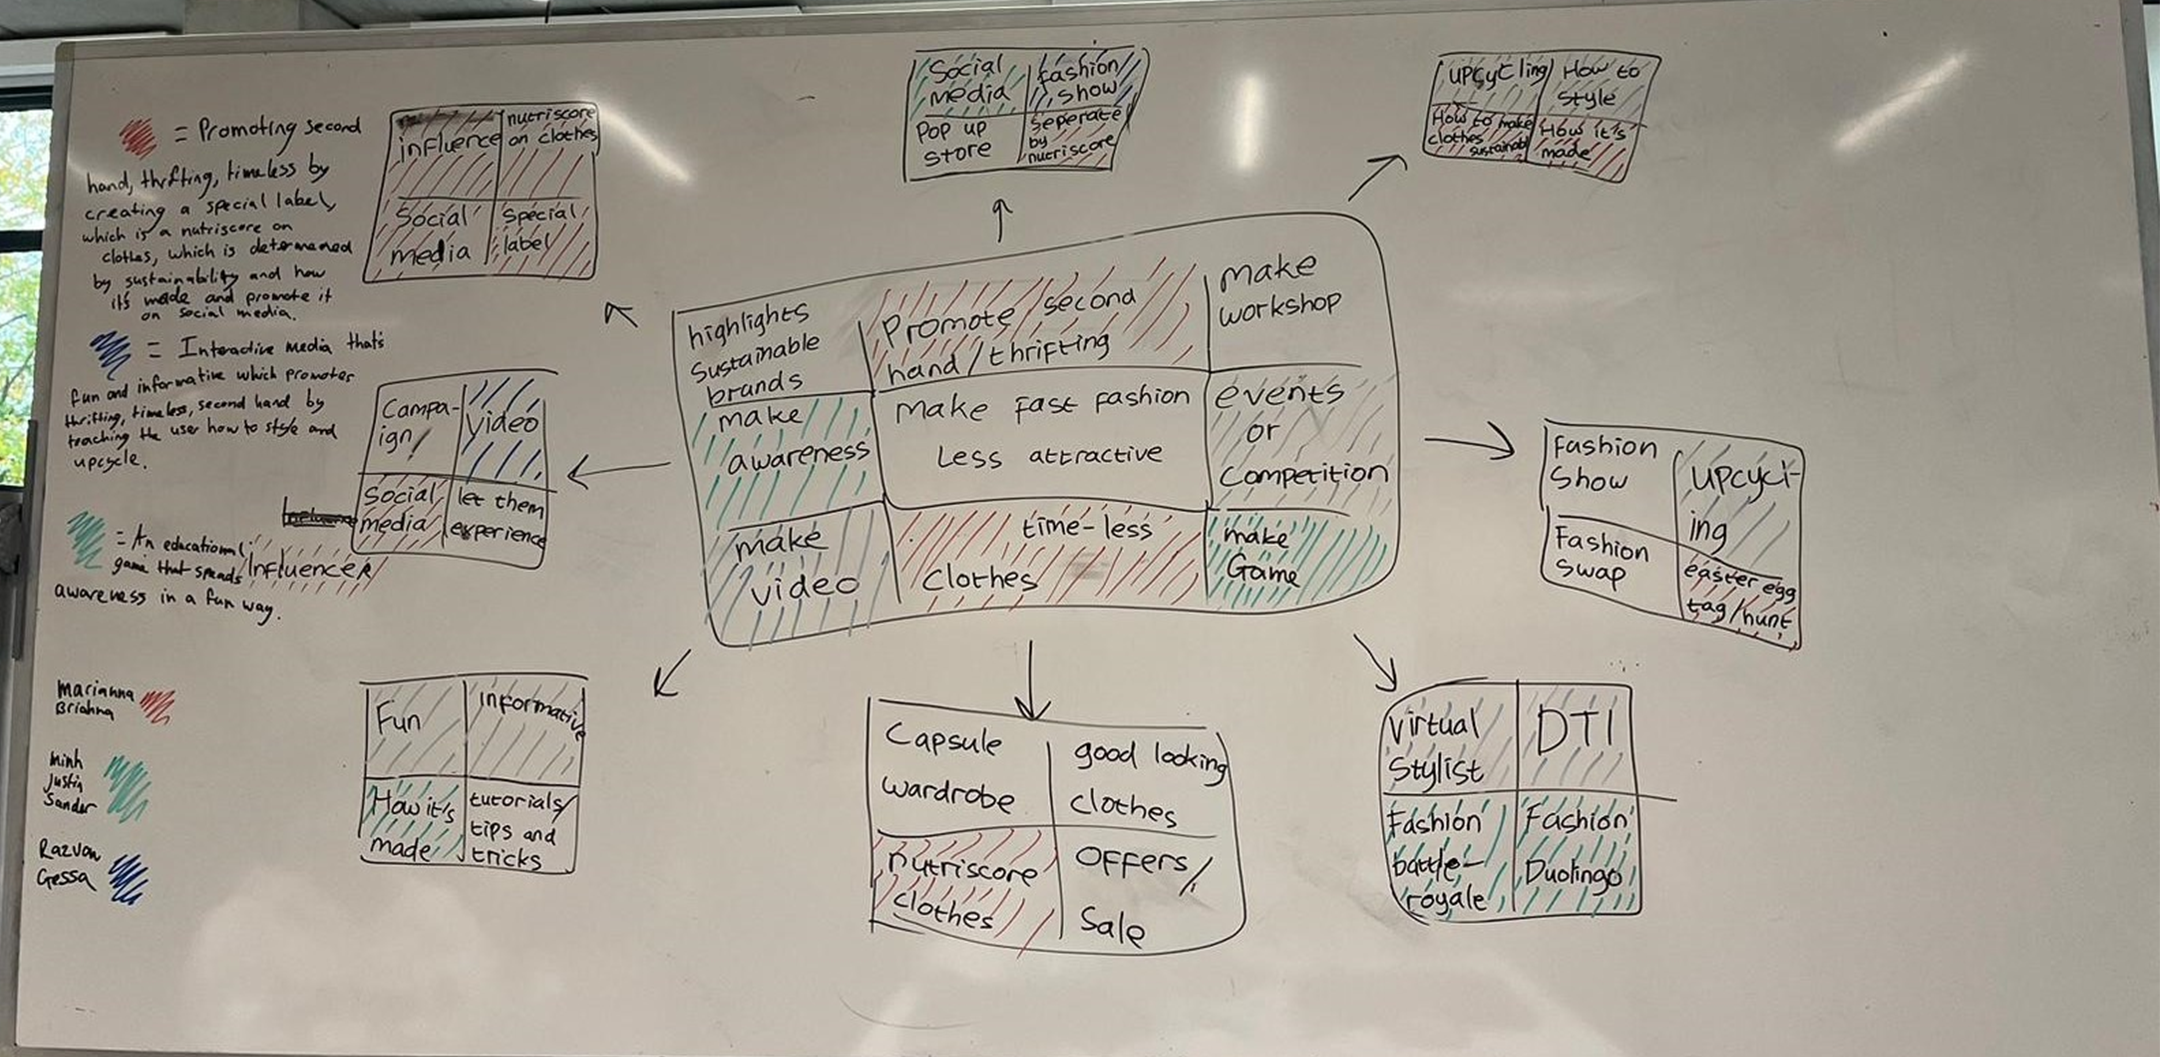 = Promoting second
hand, thrifting, timeless by
creating a special label,
which is a nutriscore on
clothes, which is determened
by sustainability and how
it's made and promote it
on social media.
= Interactive media that's
fun and informative which promotes
thrifting, timeless, second hand by
teaching the user how to style and
upcycle.
= An educational
game that spreads
awareness in a fun way.
Marianna
Brianna
Minh
Justin
Sander
Razvan
Gessa
influence
nutriscore
on clothes
Social
media
special
label
Campa-
ign
video
Social
media
let them
experience
Influencer
Fun
informative
How it's
made
tutorials/
tips and
tricks
Social
media
fashion
show
Pop up
store
seperate
by
nutriscore
highlights
sustainable
brands
Promote second
hand/thrifting
make
workshop
make
awareness
Make fast fashion
Less attractive
events
or
Competition
make
video
time-less
clothes
make
Game
Capsule
wardrobe
good looking
clothes
nutriscore
clothes
Offers/
Sale
upcycling
How to
style
How to make
clothes
sustainable
How it's
made
Fashion
Show
upcycl-
ing
Fashion
swap
easter egg
tag/hunt
Virtual
Stylist
DTI
Fashion
battle-
royale
Fashion
Duolingo